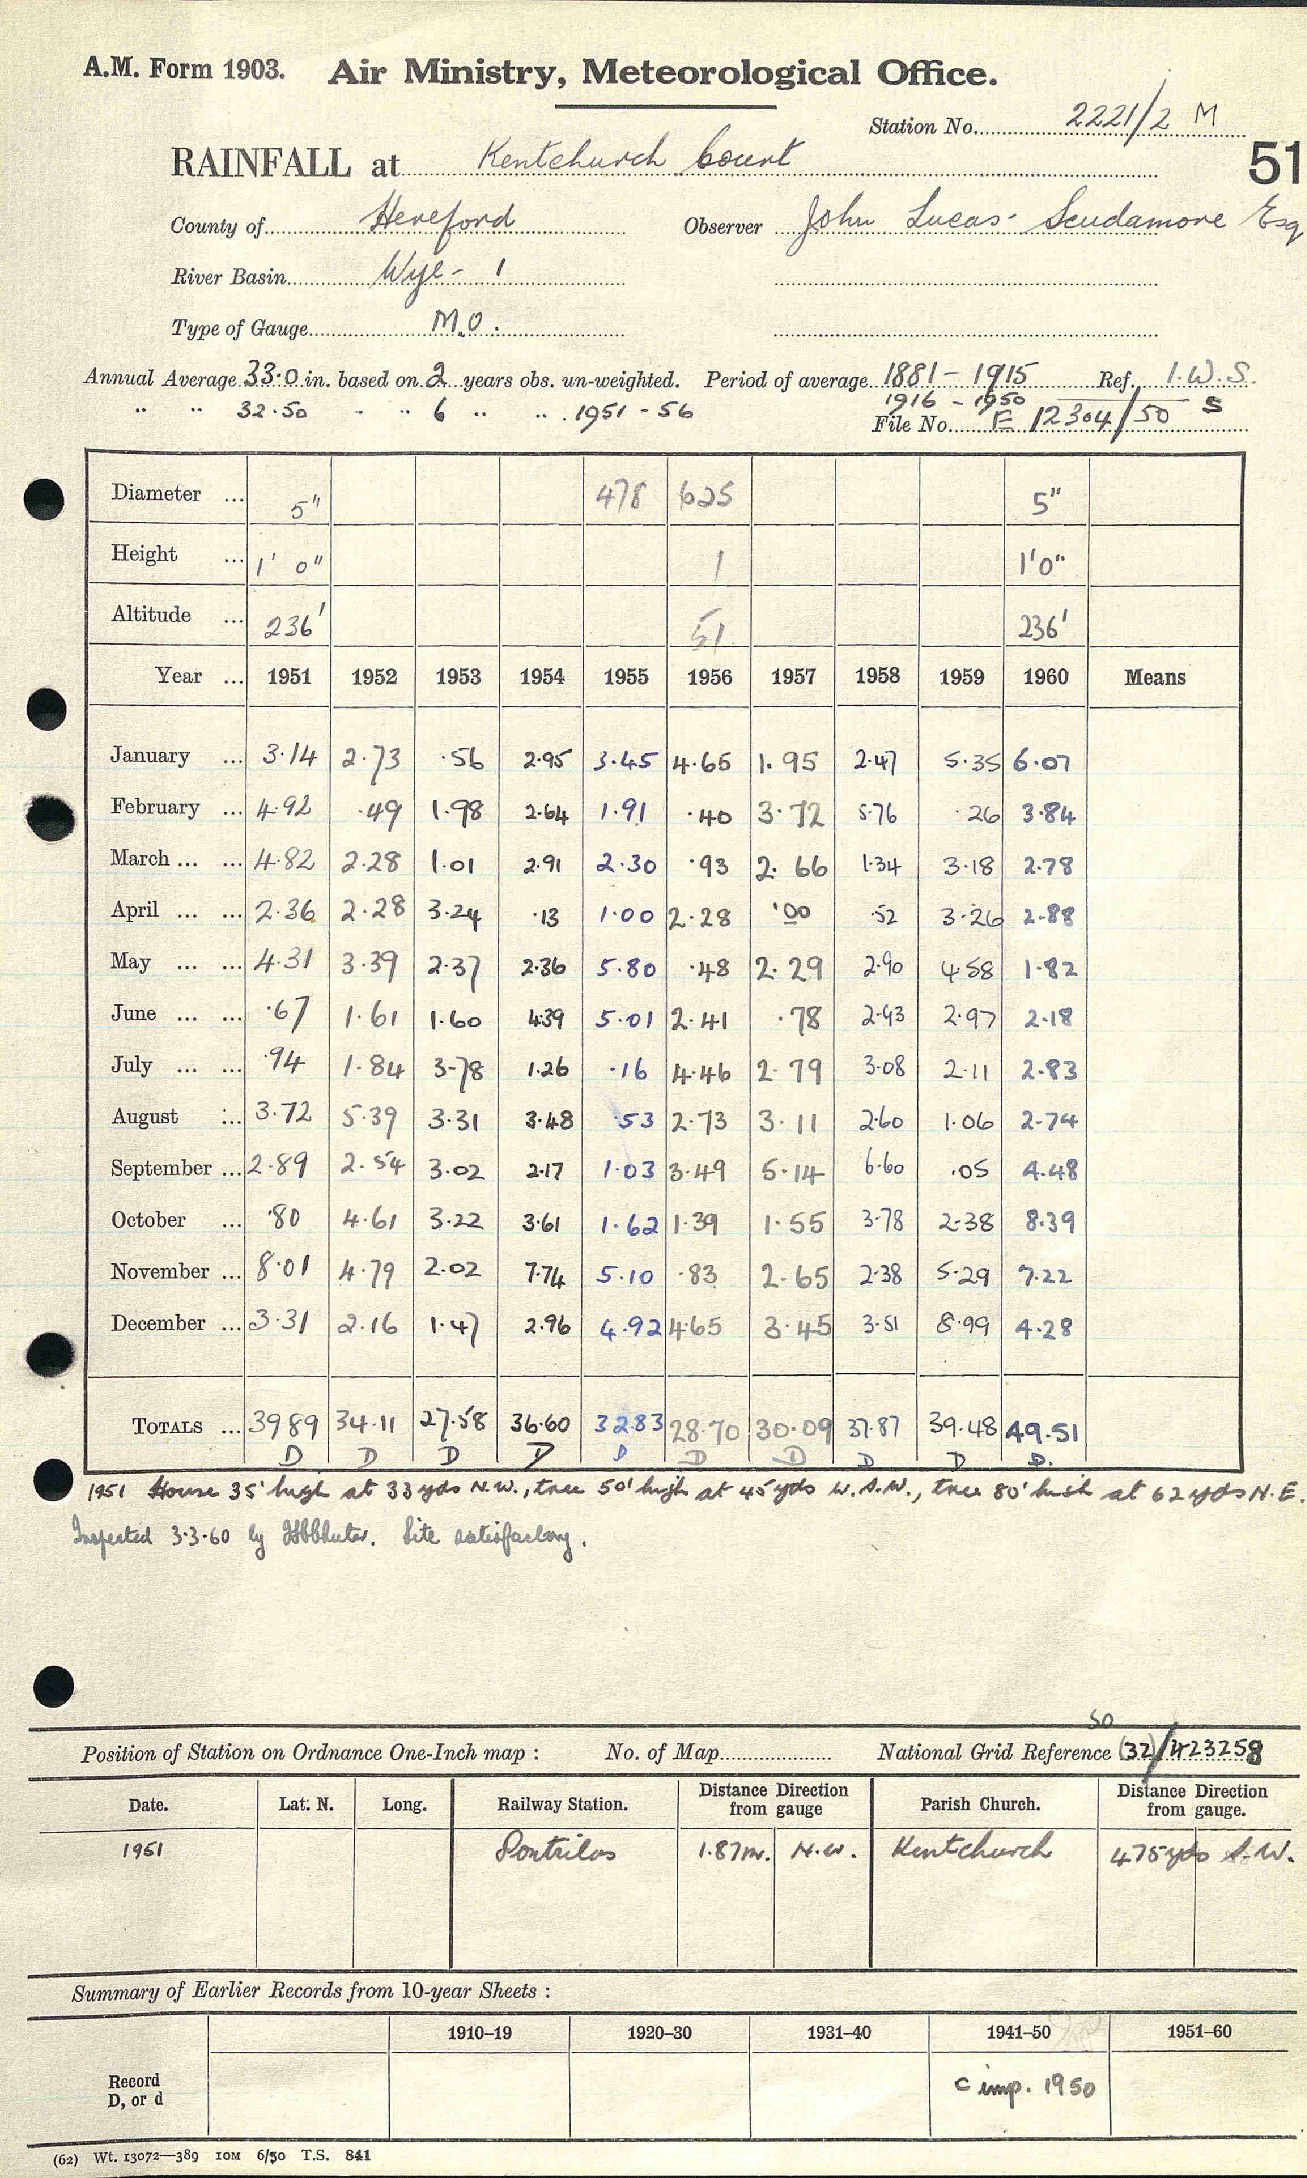 A.M. Form 1903. Air Ministry, Meteorological Office.
Station No. 2221/2 M
RAINFALL at Kentchurch Court 51
County of Hereford Observer John Lucas-Scudamore Esq
River Basin Wye - 1
Type of Gauge M.O.
Annual Average 33·0 in. based on 2 years obs. un-weighted. Period of average 1881 - 1915 Ref. I.W.S.
" " 32·50 - " 6 " " 1951 - 56 1916 - 1950
File No. E 12304/50 S
Diameter ... 5" 478 625 5"
Height ... 1' 0" 1 1'0"
Altitude ... 236' 51 236'
Year ... 1951 1952 1953 1954 1955 1956 1957 1958 1959 1960 Means
January ... 3·14 2·73 ·56 2·95 3·45 4·65 1·95 2·47 5·35 6·07
February ... 4·92 ·49 1·98 2·64 1·91 ·40 3·72 5·76 ·26 3·84
March ... ... 4·82 2·28 1·01 2·91 2·30 ·93 2·66 1·34 3·18 2·78
April ... ... 2·36 2·28 3·24 ·13 1·00 2·28 ·00 ·52 3·26 2·88
May ... ... 4·31 3·39 2·37 2·36 5·80 ·48 2·29 2·90 4·58 1·82
June ... ... ·67 1·61 1·60 4·39 5·01 2·41 ·78 2·93 2·97 2·18
July ... ... ·94 1·84 3·78 1·26 ·16 4·46 2·79 3·08 2·11 2·83
August ... 3·72 5·39 3·31 3·48 ·53 2·73 3·11 2·60 1·06 2·74
September ... 2·89 2·54 3·02 2·17 1·03 3·49 5·14 6·60 ·05 4·48
October ... ·80 4·61 3·22 3·61 1·62 1·39 1·55 3·78 2·38 8·39
November ... 8·01 4·79 2·02 7·74 5·10 ·83 2·65 2·38 5·29 7·22
December ... 3·31 2·16 1·47 2·96 4·92 4·65 3·45 3·51 8·99 4·28
TOTALS ... 39 89 34·11 27·58 36·60 32·83 28·70 30·09 37·87 39·48 49·51
D D D D D D D D D D.
1951 House 35' high at 33 yds N.W., tree 50' high at 45 yds W.S.W., tree 80' high at 62 yds N.E.
Inspected 3·3·60 by Site satisfactory.
50
Position of Station on Ordnance One-Inch map : No. of Map National Grid Reference (32)/423258
Date. Lat. N. Long. Railway Station. Distance Direction from gauge Parish Church. Distance Direction from gauge.
1951 Pontrilas 1·87m. N.W. Kentchurch 475 yds S.W.
Summary of Earlier Records from 10-year Sheets :
1910–19 1920–30 1931–40 1941–50 1951–60
Record D, or d c imp. 1950
(62) Wt. 13072—389 10M 6/50 T.S. 841